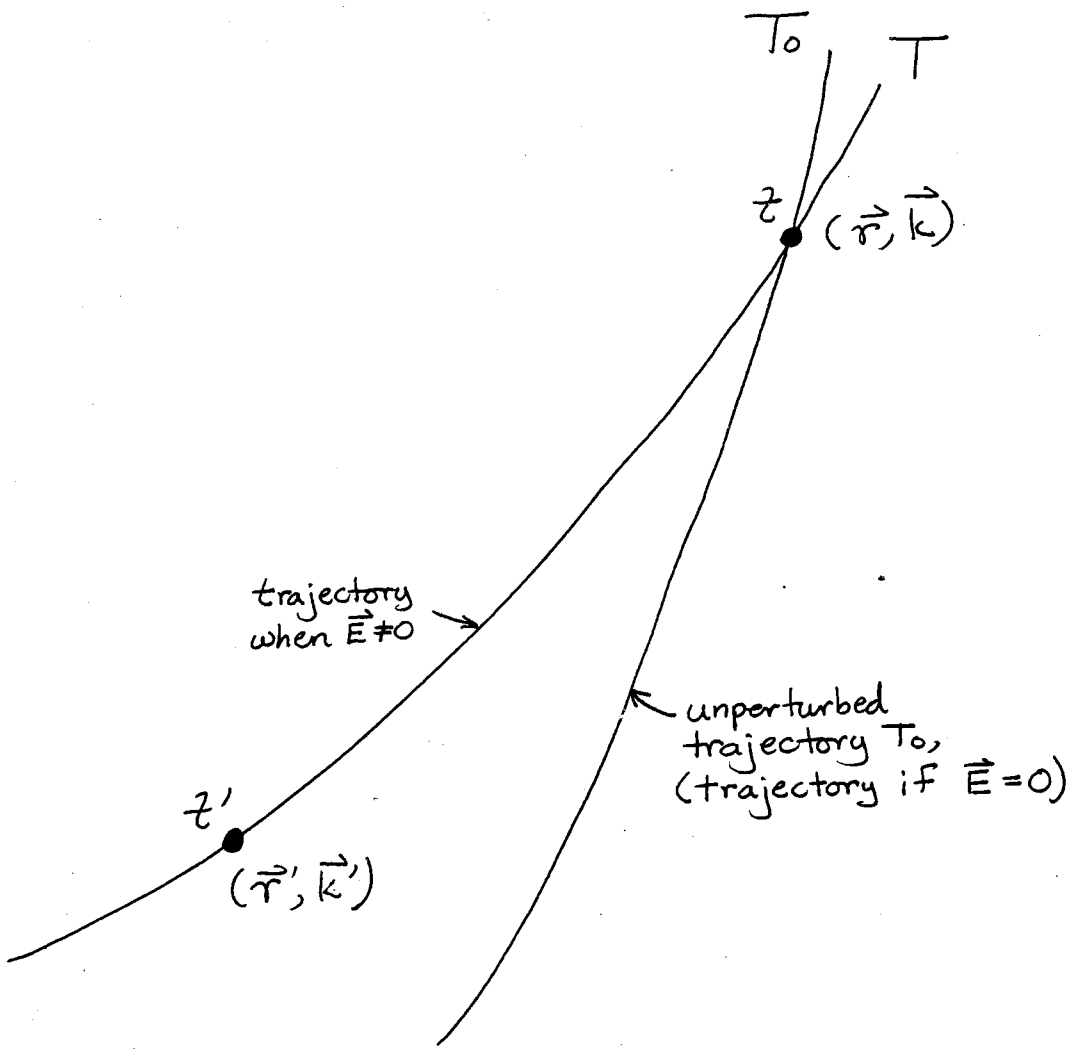 T₀
T
t
(r⃗, k⃗)
trajectory
when E⃗ ≠ 0
unperturbed
trajectory T₀,
(trajectory if E⃗ = 0)
t'
(r⃗', k⃗')